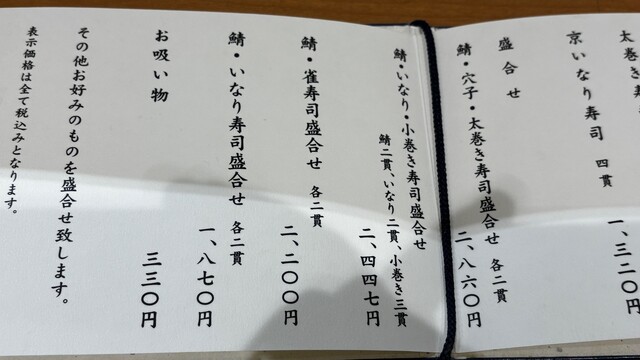 太巻き寿
京いなり寿司 四貫
一、三二〇円
盛合せ
鯖・穴子・太巻き寿司盛合せ 各二貫
二、八六〇円
鯖・いなり・小巻き寿司盛合せ
鯖二貫、いなり二貫、小巻き三貫
二、四四七円
鯖・雀寿司盛合せ 各二貫
二、二〇〇円
鯖・いなり寿司盛合せ 各二貫
一、八七〇円
お吸い物
三三〇円
その他お好みのものを盛合せ致します。
表示価格は全て税込みとなります。